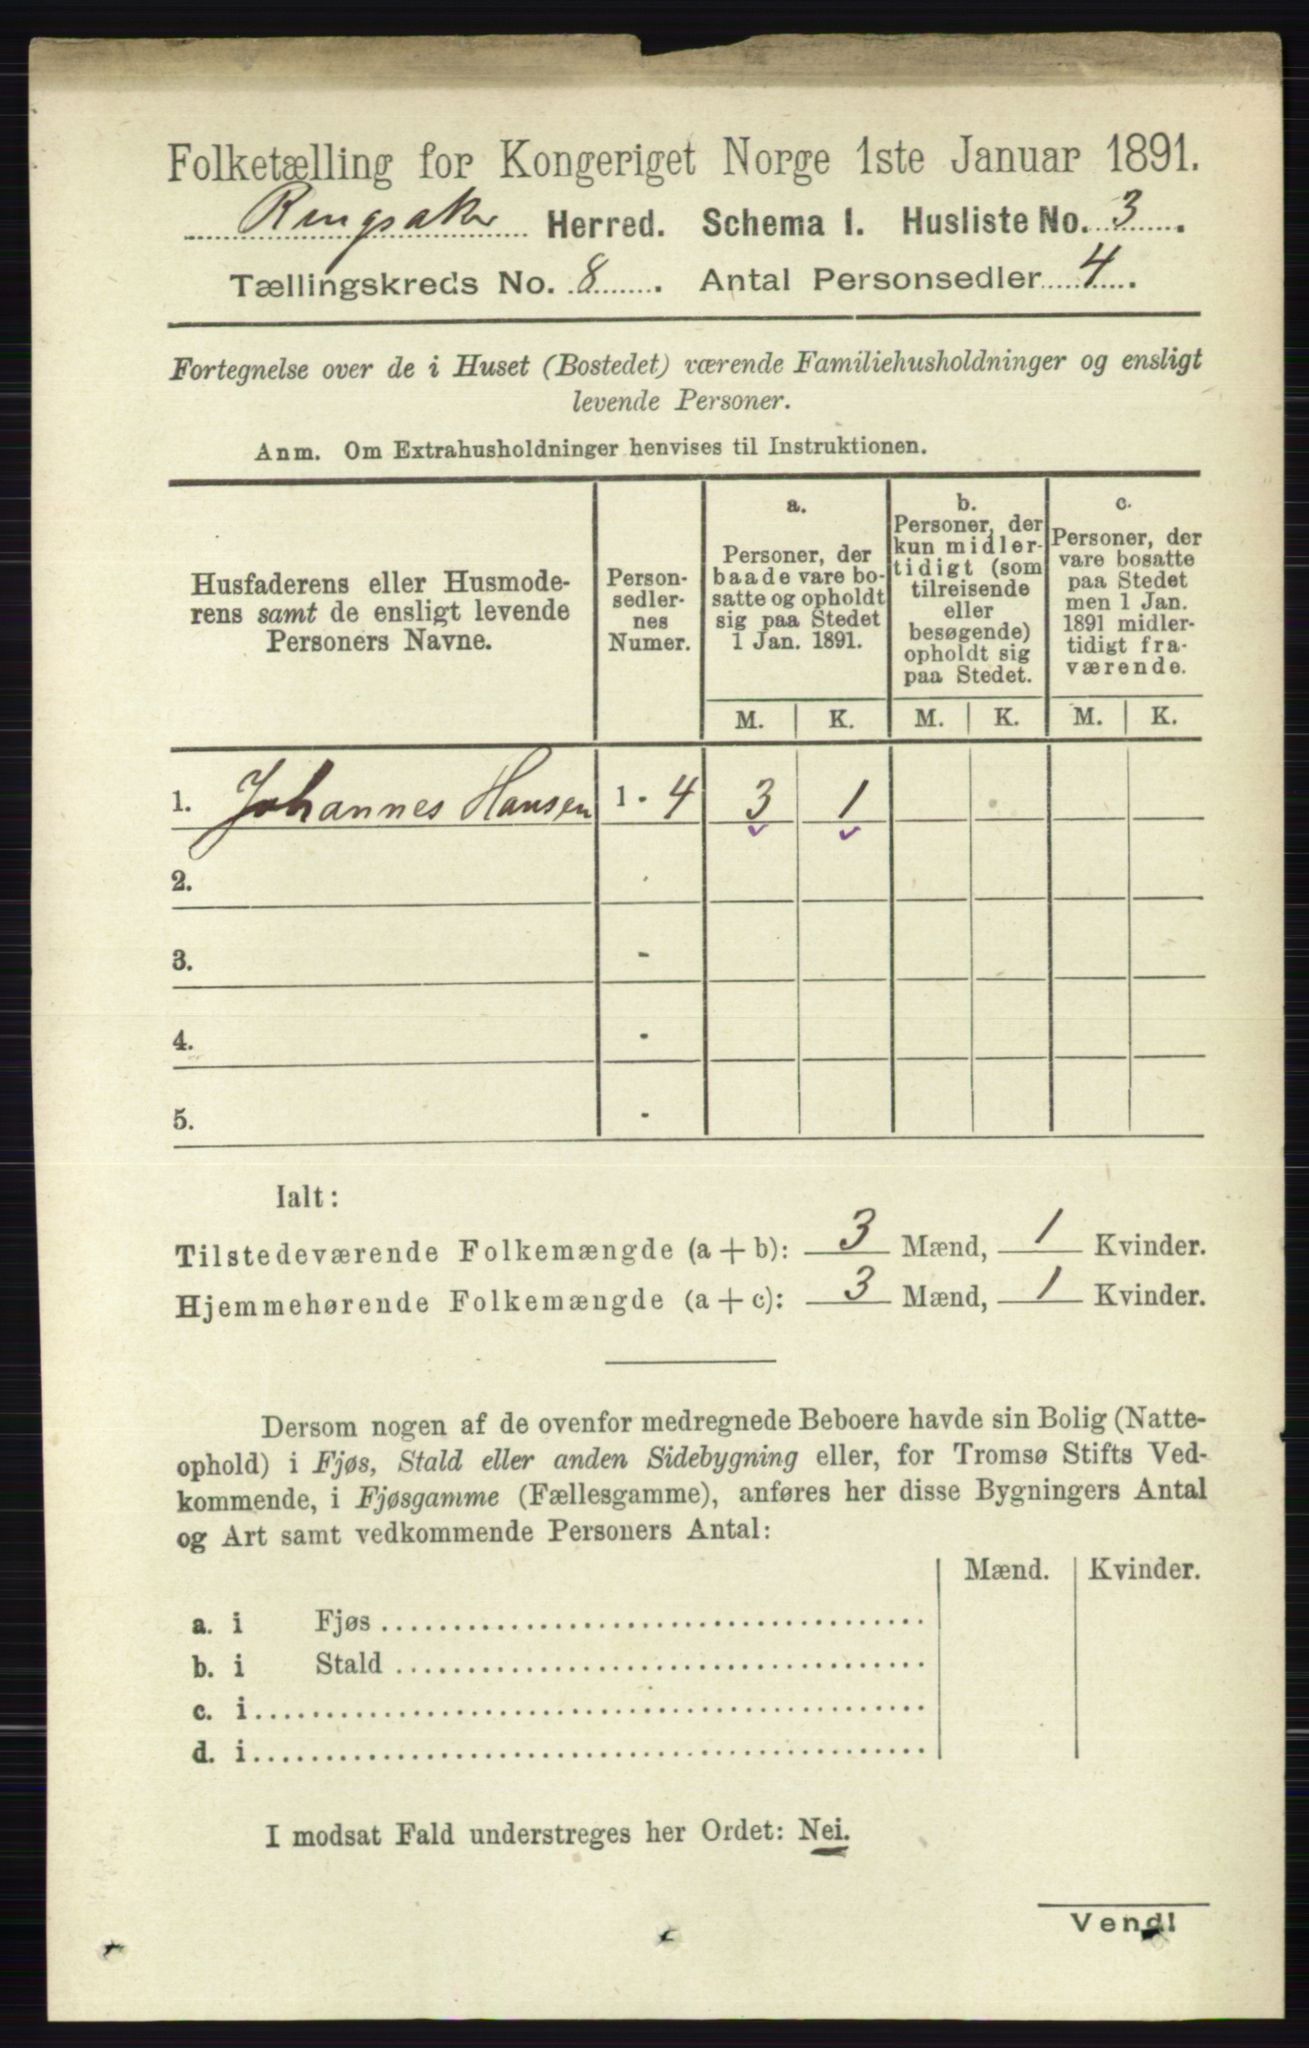 Folketælling for Kongeriget Norge 1ste Januar 1891.
Ringsaker Herred. Schema I. Husliste No. 3.
Tællingskreds No. 8. Antal Personsedler 4.
Fortegnelse over de i Huset (Bostedet) værende Familiehusholdninger og ensligt
levende Personer.
Anm. Om Extrahusholdninger henvises til Instruktionen.
Husfaderens eller Husmode-
rens samt de ensligt levende
Personers Navne.
Person-
sedler-
nes
Numer.
a.
Personer, der
baade vare bo-
satte og opholdt
sig paa Stedet
1 Jan. 1891.
b.
Personer, der
kun midler-
tidigt (som
tilreisende
eller
besøgende)
opholdt sig
paa Stedet.
c.
Personer, der
vare bosatte
paa Stedet
men 1 Jan.
1891 midler-
tidigt fra-
værende.
M. K. M. K. M. K.
1. Johannes Hansen 1 - 4 3 1
2.
3. -
4. -
5. -
Ialt:
Tilstedeværende Folkemængde (a + b): 3 Mænd, 1 Kvinder.
Hjemmehørende Folkemængde (a + c): 3 Mænd, 1 Kvinder.
Dersom nogen af de ovenfor medregnede Beboere havde sin Bolig (Natte-
ophold) i Fjøs, Stald eller anden Sidebygning eller, for Tromsø Stifts Ved-
kommende, i Fjøsgamme (Fællesgamme), anføres her disse Bygningers Antal
og Art samt vedkommende Personers Antal:
Mænd. Kvinder.
a. i Fjøs
b. i Stald
c. i
d. i
I modsat Fald understreges her Ordet: Nei.
Vend!